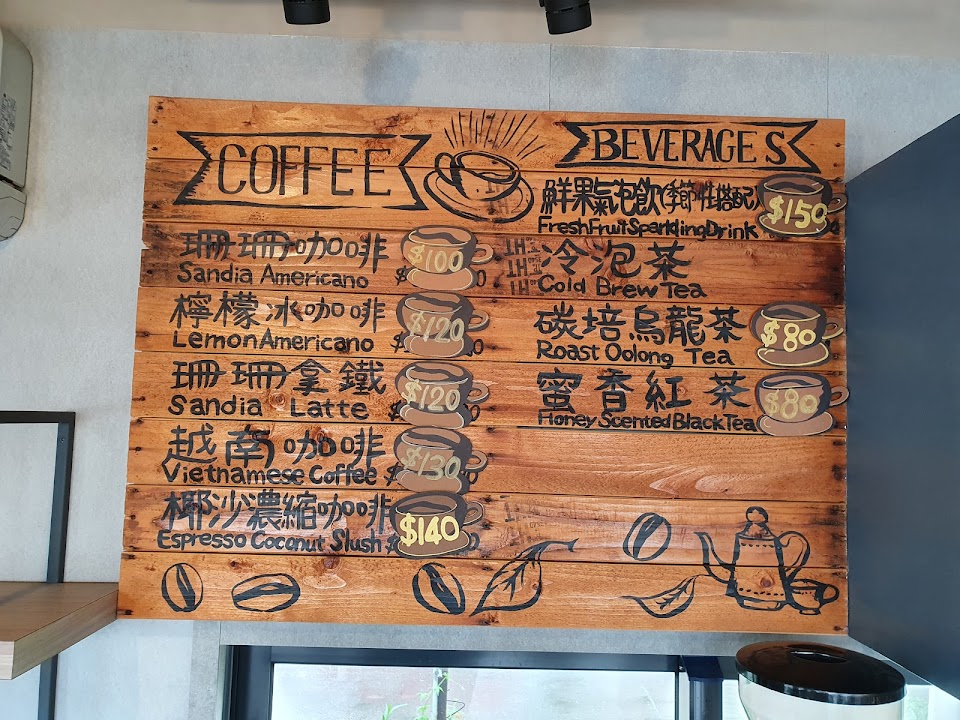 COFFEE
珊珊咖啡 $100
Sandia Americano
檸檬冰咖啡 $120
Lemon Americano
珊珊拿鐵 $120
Sandia Latte
越南咖啡 $130
Vietnamese Coffee
椰沙濃縮咖啡 $140
Espresso Coconut Slush
BEVERAGES
鮮果氣泡飲(季節性搭配) $150
Fresh Fruit Sparkling Drink
冷泡茶
Cold Brew Tea
碳培烏龍茶 $80
Roast Oolong Tea
蜜香紅茶 $80
Honey Scented Black Tea